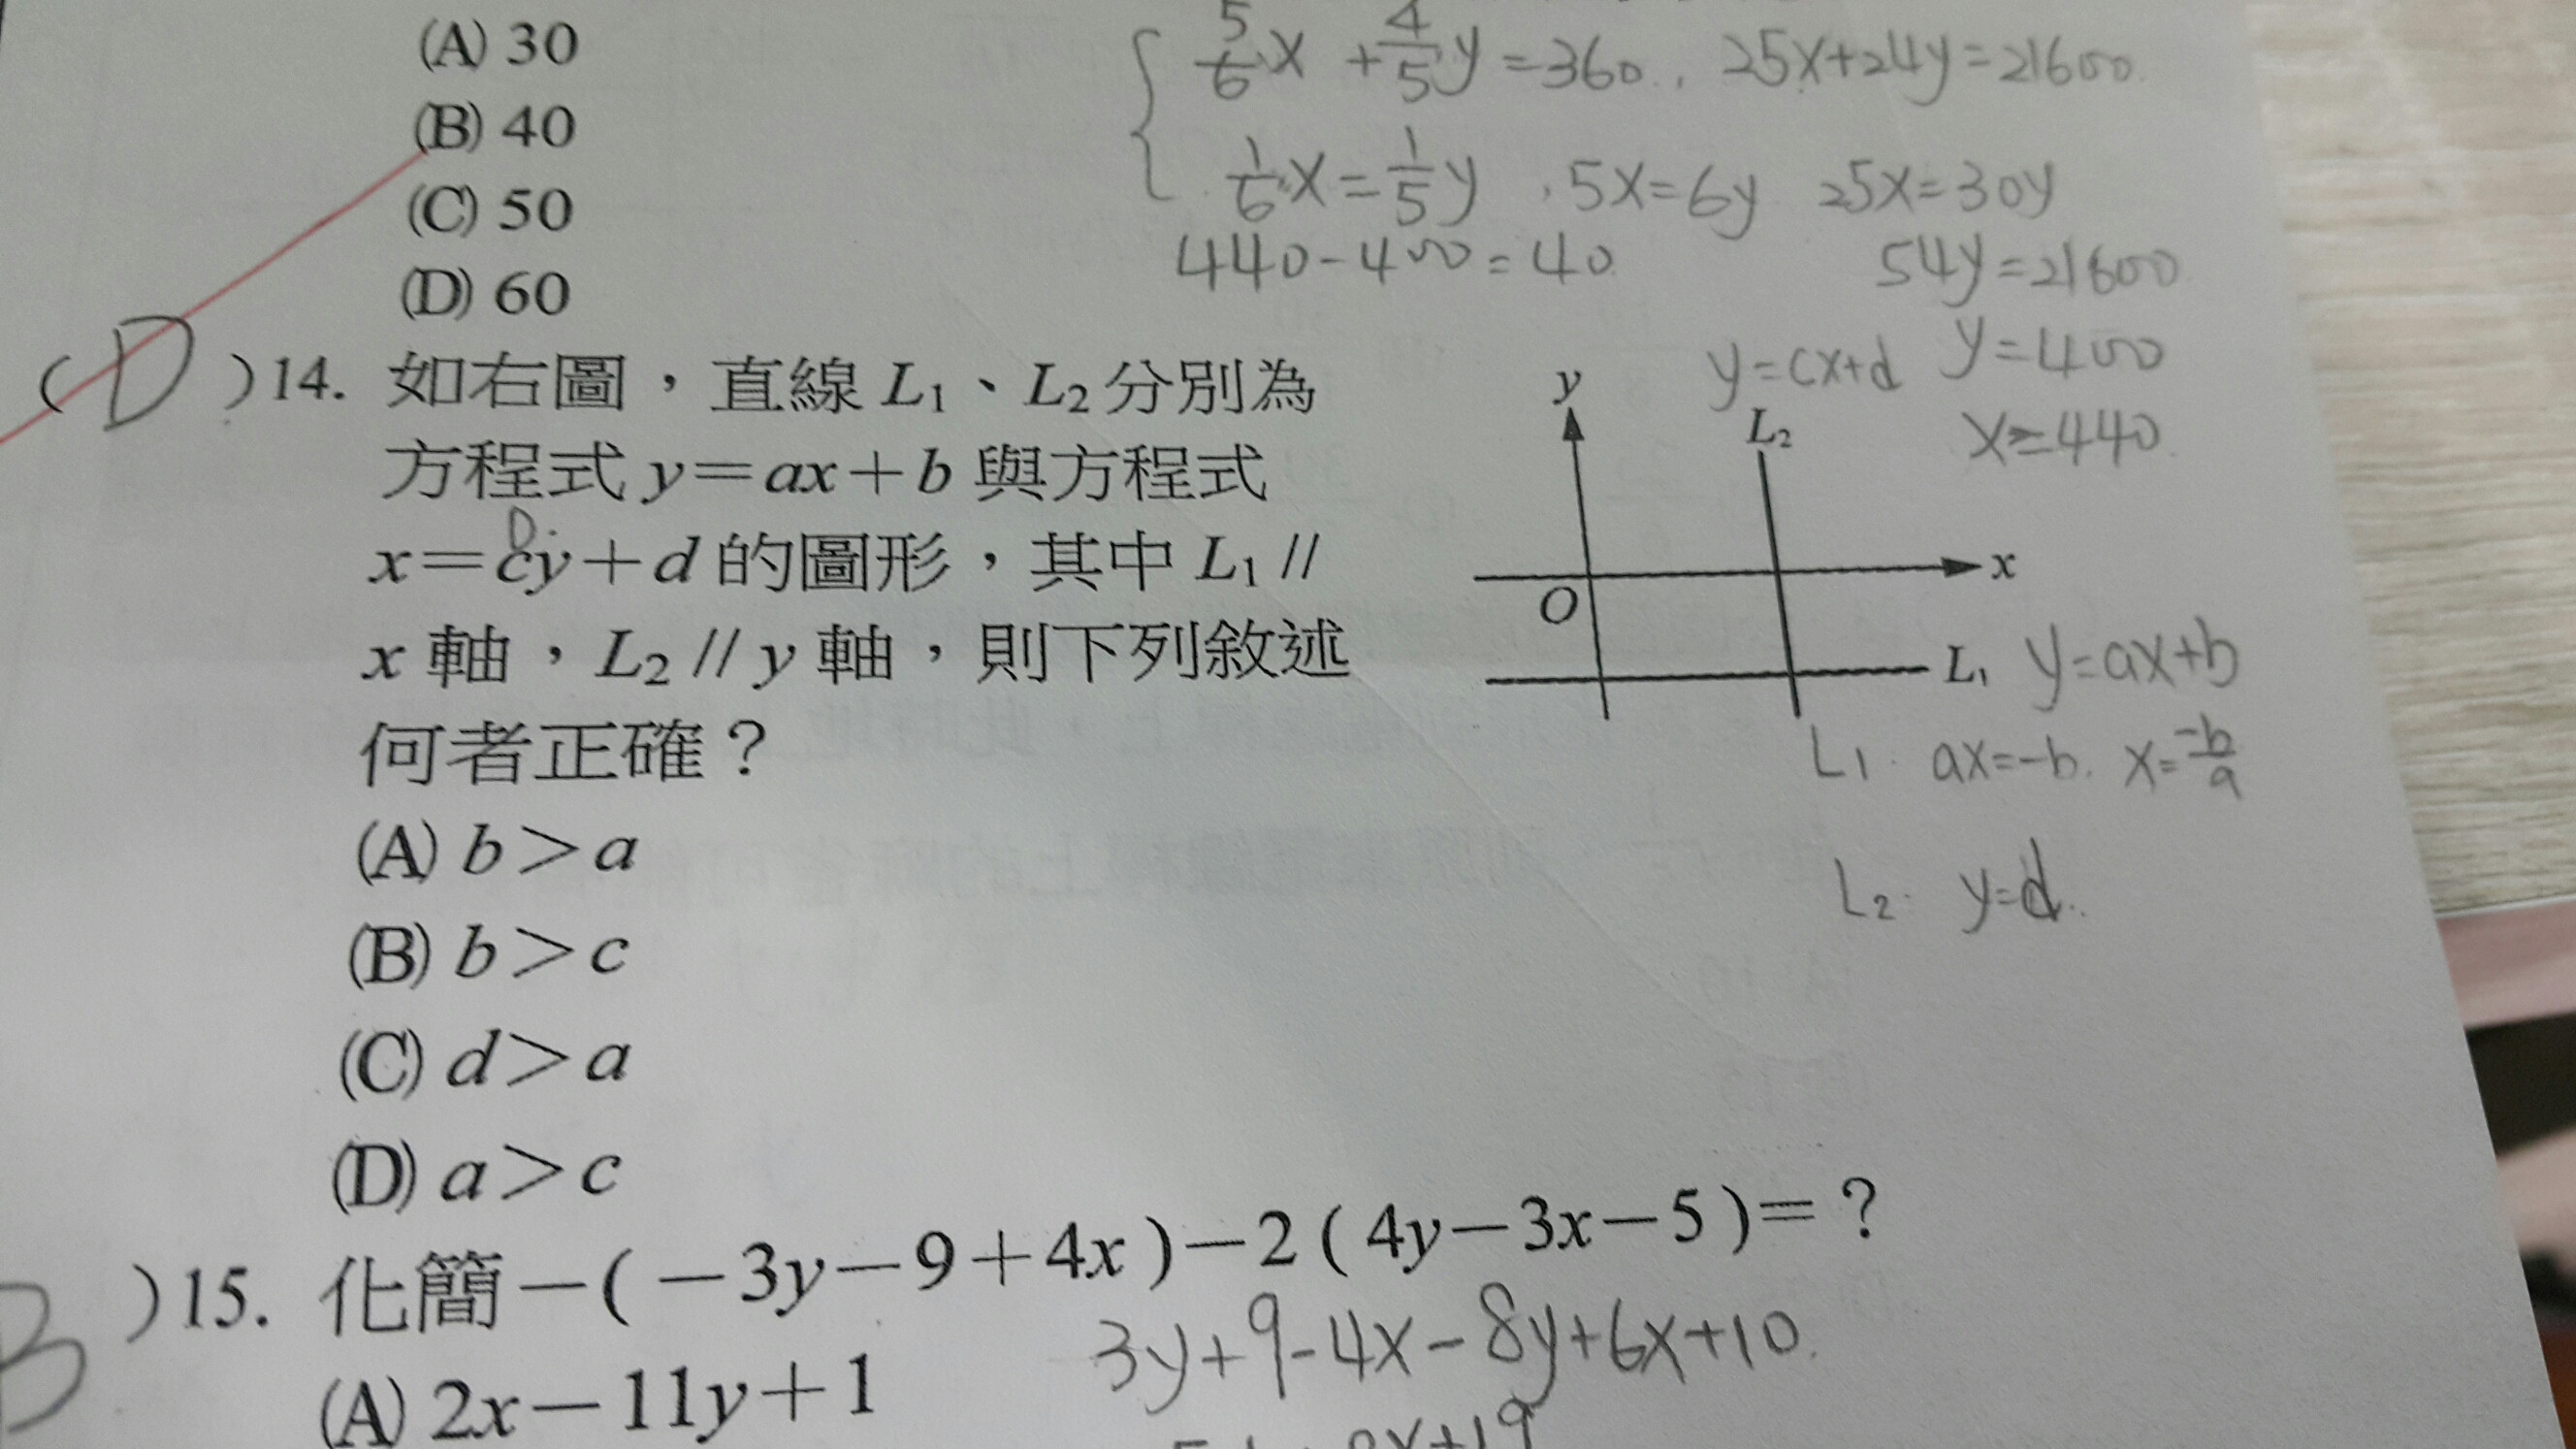 (A) 30
(B) 40
(C) 50
(D) 60
5/6 x + 4/5 y = 360 . 25x+24y=21600
1/6 x = 1/5 y . 5x=6y 25x=30y
440-400=40 54y=21600
y=400
x=440
(D) 14. 如右圖，直線 L₁、L₂ 分別為
方程式 y＝ax＋b 與方程式
x＝cy＋d 的圖形，其中 L₁ //
x 軸，L₂ // y 軸，則下列敘述
何者正確？
(A) b＞a
(B) b＞c
(C) d＞a
(D) a＞c
y=cx+d
y
L₂
x
O
L₁ y=ax+b
L₁. ax=-b. x=-b/a
L₂. y=d.
B )15. 化簡－(－3y－9＋4x)－2(4y－3x－5)＝？
3y+9-4x-8y+6x+10
(A) 2x－11y＋1